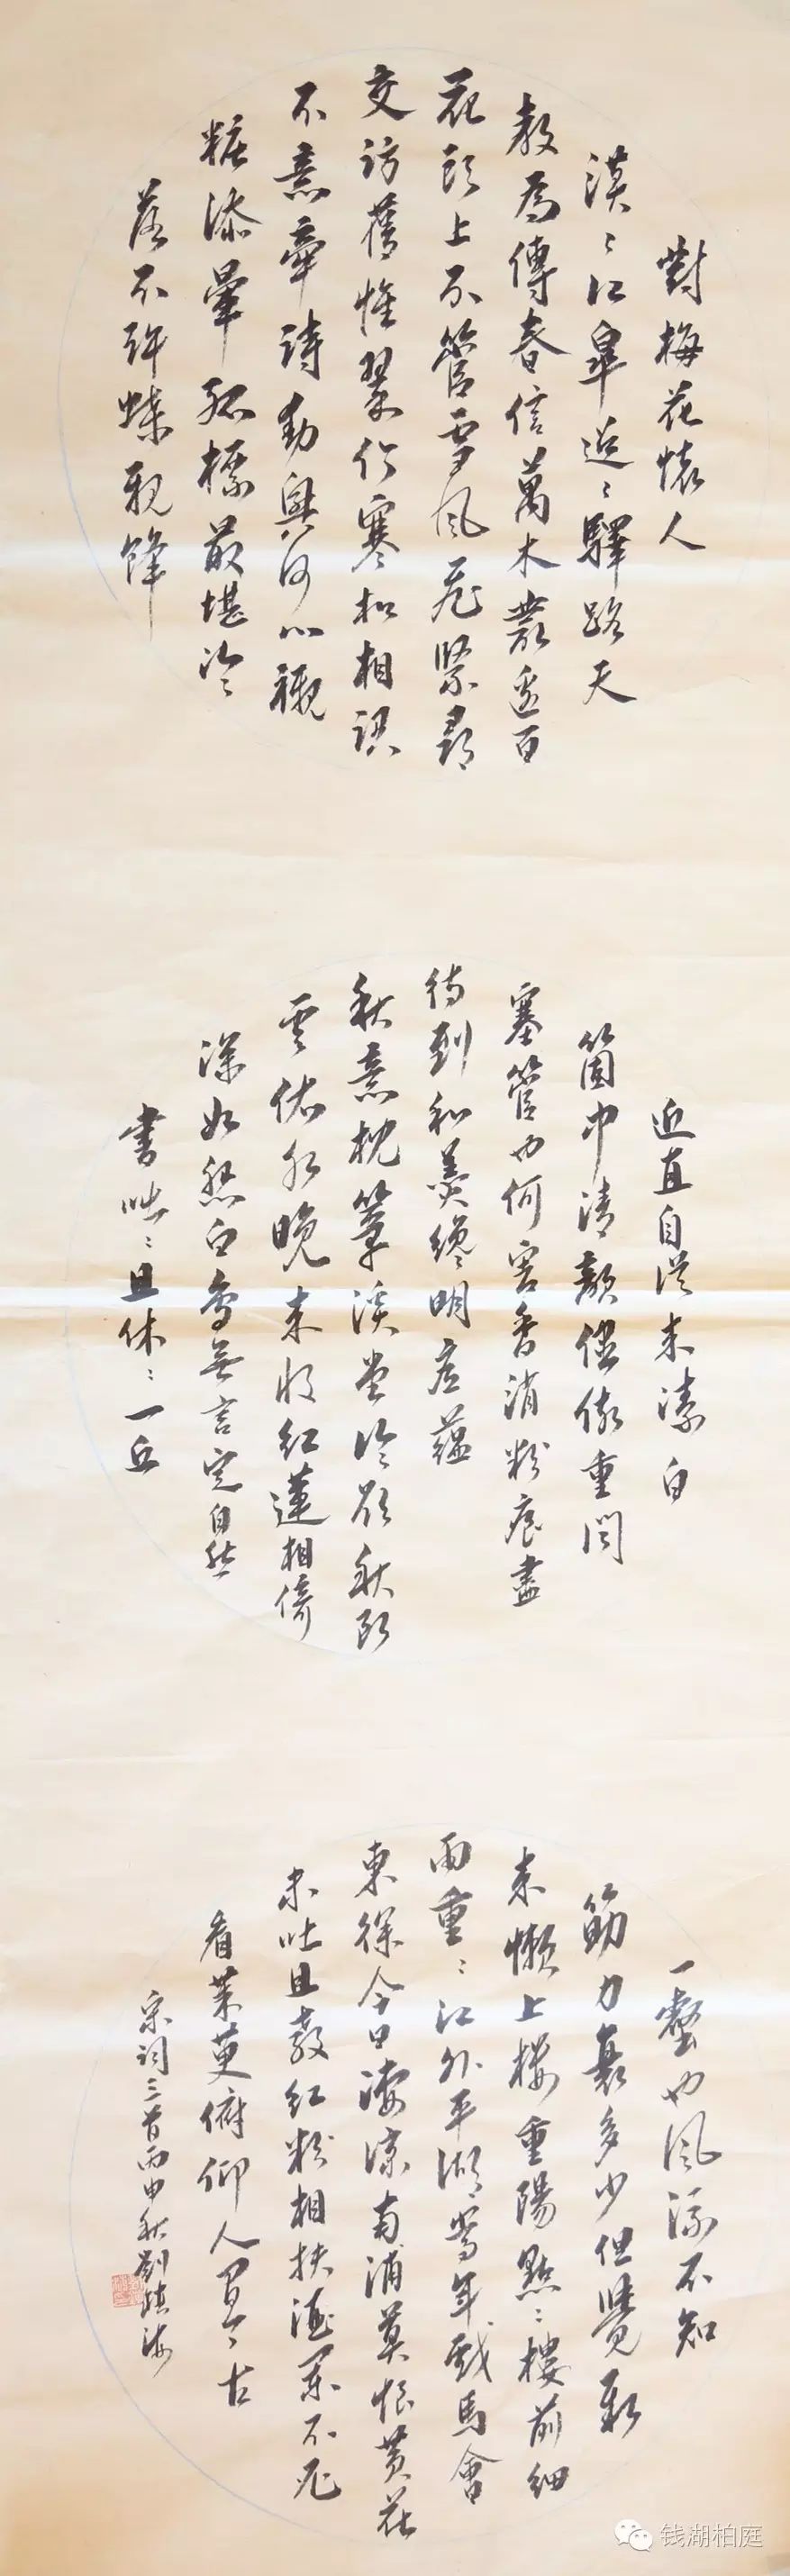 對梅花懷人
漠〻江皋迢〻驛路天
教為傳春信萬木叢邊百
花頭上不管雪風飛緊尋
交訪舊惟翠竹寒松相識
不意牽詩動興何心襯
粧添暈孤標最堪冷
落不許蝶親蜂
近直自從來潔白
箇中清韻儘做重聞
塞管也何害香消粉痕盡
待到和羹纔明底蘊
秋意枕簟溪堂冷欲秋斷
雲依水晚來收紅蓮相倚
渾如愁白鳥無言定自愁
書咄〻且休〻一丘
一壑也風流不知
筋力衰多少但覺新
來懶上樓重陽點〻樓前細
雨重〻江外平湖當年戲馬會
東徐今日淒涼南浦莫恨黃花
未吐且教紅粉相扶酒闌不必
看茱萸俯仰人間今古
宋詞三首丙申秋劉海
钱湖柏庭